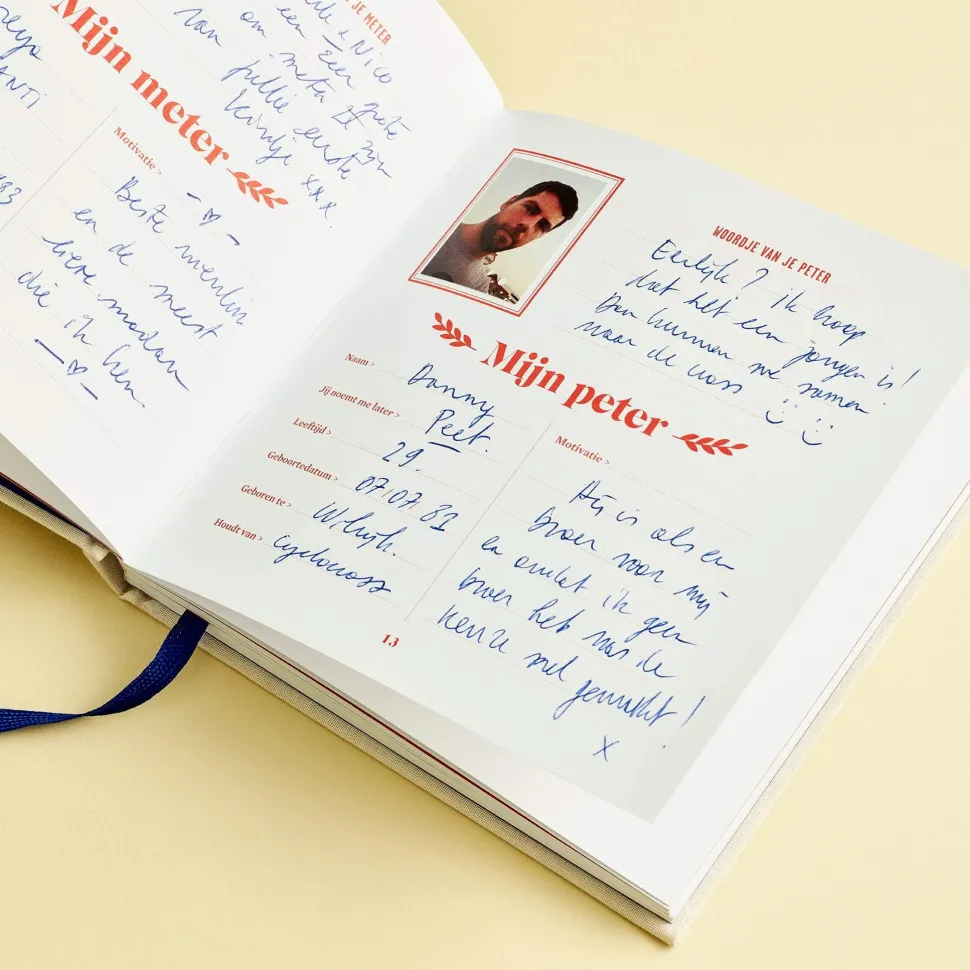 JE METER
& Nico
een Eer
om meter te
van jullie eerste
kindje xxx
Mijn meter
Motivatie >
Beste vriendin
en de meest
lieve madam
die ik ken.
WOORDJE VAN JE PETER
Eerlijk? ik hoop
dat het een jongen is!
Dan kunnen we samen
naar de cross
Mijn peter
Naam > Danny
Jij noemt me later > Peet.
Leeftijd > 29.
Geboortedatum > 07/07/82
Geboren te > Wilrijk.
Houdt van > cyclocross
Motivatie >
Hij is als een
broer voor mij
en omdat ik geen
broer heb was de
keuze snel gemaakt!
x
13